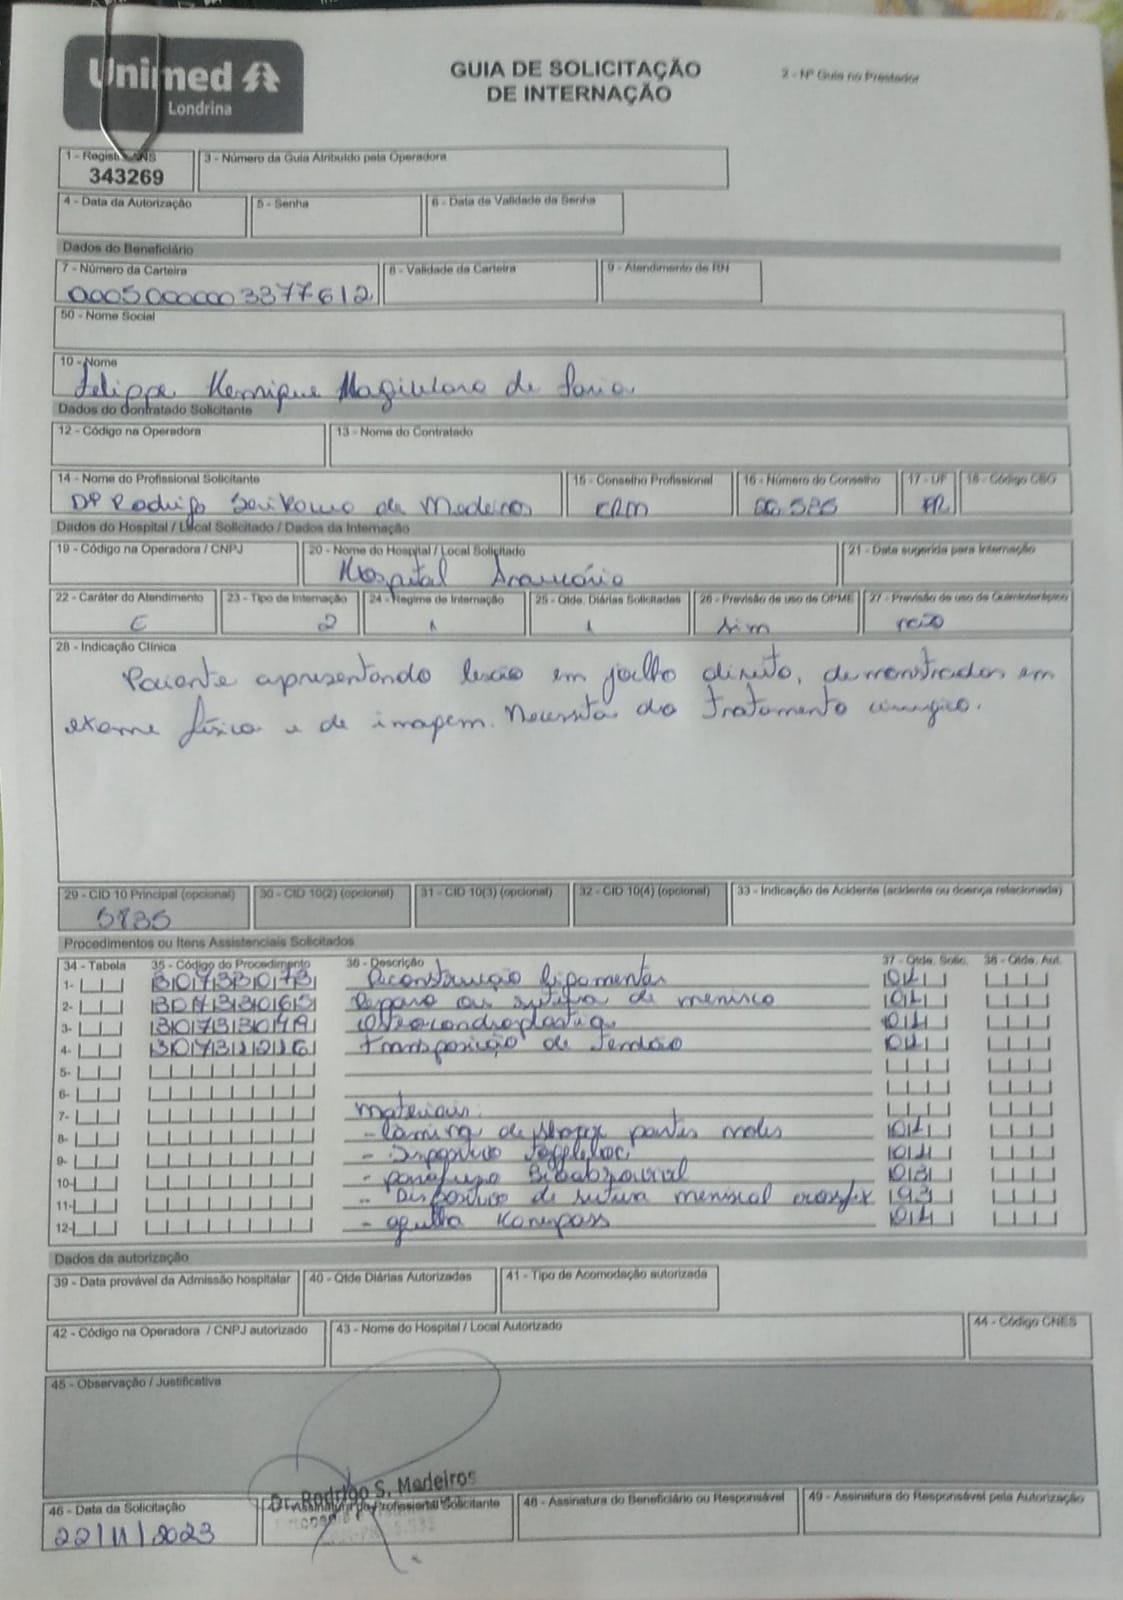 Unimed
Londrina
GUIA DE SOLICITAÇÃO
DE INTERNAÇÃO
2 - Nº Guia no Prestador
1 - Registro ANS
343269
3 - Número da Guia Atribuído pela Operadora
4 - Data da Autorização
5 - Senha
6 - Data de Validade da Senha
Dados do Beneficiário
7 - Número da Carteira
8 - Validade da Carteira
9 - Atendimento de RN
50 - Nome Social
10 - Nome
Felippe Henrique de
Dados do Contratado Solicitante
12 - Código na Operadora
13 - Nome do Contratado
14 - Nome do Profissional Solicitante
15 - Conselho Profissional
16 - Número do Conselho
17 - UF
18 - Código CBO
Dr Rodrigo de Medeiros
CRM
PR
Dados do Hospital / Local Solicitado / Dados da Internação
19 - Código na Operadora / CNPJ
20 - Nome do Hospital / Local Solicitado
21 - Data sugerida para Internação
Hospital Araucária
22 - Caráter do Atendimento
23 - Tipo de Internação
24 - Regime de Internação
25 - Qtde. Diárias Solicitadas
26 - Previsão de uso de OPME
27 - Previsão de uso de Quimioterápico
E
2
1
1
sim
não
28 - Indicação Clínica
Paciente apresentando lesão em joelho direito, demonstrados em
exame físico e de imagem. Necessita de tratamento cirurgico.
29 - CID 10 Principal (opcional)
30 - CID 10(2) (opcional)
31 - CID 10(3) (opcional)
32 - CID 10(4) (opcional)
33 - Indicação de Acidente (acidente ou doença relacionada)
S835
Procedimentos ou Itens Assistenciais Solicitados
34 - Tabela
35 - Código do Procedimento
36 - Descrição
37 - Qtde. Solic.
38 - Qtde. Aut.
1- Reconstrução ligamentar 01
2- Reparo ou sutura de menisco 01
3- Osteocondroplastia 01
4- Transposição de Tendão 01
5-
6-
7- materiais:
8- - Lamina de shaver partes moles 01
9- - Dispositivo 01
10- - parafuso Bioabsorvivel
11- - Dispositivo de sutura meniscal crossfix
12- - agulha 01
Dados da autorização
39 - Data provável da Admissão hospitalar
40 - Qtde Diárias Autorizadas
41 - Tipo de Acomodação autorizada
42 - Código na Operadora / CNPJ autorizado
43 - Nome do Hospital / Local Autorizado
44 - Código CNES
45 - Observação / Justificativa
Dr. Rodrigo S. Medeiros
46 - Data da Solicitação
Assinatura do Profissional Solicitante
48 - Assinatura do Beneficiário ou Responsável
49 - Assinatura do Responsável pela Autorização
22/11/2023